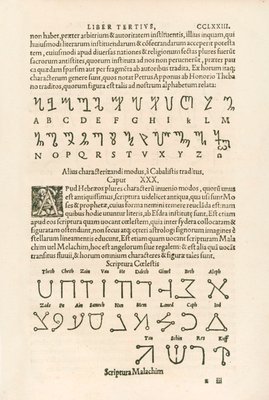 LIBER TERTIVS, CCLXXIII.
non habet, præter arbitrium & autoritatem instituentis, illas inquam, qui
huiusmodi literarum instituendarum & cōsecrandarum acceperit potesta
tem, cuiusmodi apud diuersas nationes & religionum sectas plures fuerunt
prælati, quorum instituta ad nos non peruenerunt, præter pau
ca quædam sparsim aut per fragmēta ab autoribus tradita. Ex horum itaq;
characterum genere sunt, quos notat Petrus Apponus ab Honorio Theba
no traditos, quorum figura est talis ad nostrum alphabetum relata:
A B C D E F G H I K L M
N O P Q R S T V X Y Z Ω
Alius characterizandi modus, à Cabalistis traditus,
Caput XXX.
APud Hebræos plures characterū inuenio modos, quorū unus
est antiquissimus, scriptura uidelicet antiqua, qua usi sunt Mo
ses & prophetæ, cuius forma nemini temere reuelāda est: nam
quibus hodie utuntur literis, ab Esdra institutę sunt. Est etiam
apud eos scriptura, quam uocant cœlestem, quia inter sydera collocatam &
figuratam ostendunt, non secus atq; cęteri astrologi signorum imagines è
stellarum lineamentis educunt. Est etiam quam uocant scripturam Mala
chim uel Melachim, hoc est angelorum siue regalem: & est alia quā uocāt
transitus fluuij, & horum omnium characteres atq; figuræ sunt tales.
Scriptura Cœlestis
Theth Cheth Zain Vau He Daleth Gimel Beth Aleph
Zade Pe Ain Samech Nun Mem Lamed Caph Iod
Tau Schin Res Kuff
Scriptura Malachim